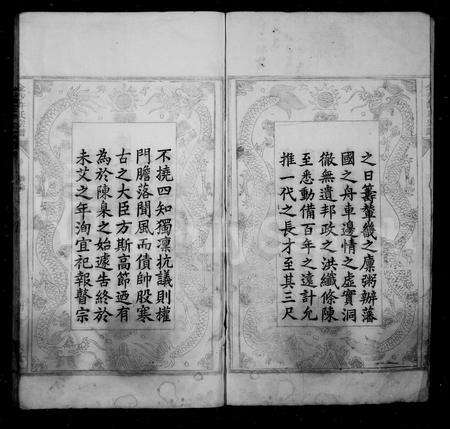 之日籌輦轂之麋粥辦藩
國之舟車邊情之虛實洞
徹無遺邦政之洪纖條陳
至悉動備百年之遠計允
推一代之長才至其三尺
不撓四知獨凜抗議則權
門膽落聞風而債帥股寒
古之大臣方斯高節迺有
為於陳臬之始遽告終於
未艾之年洵宜祀報瞽宗